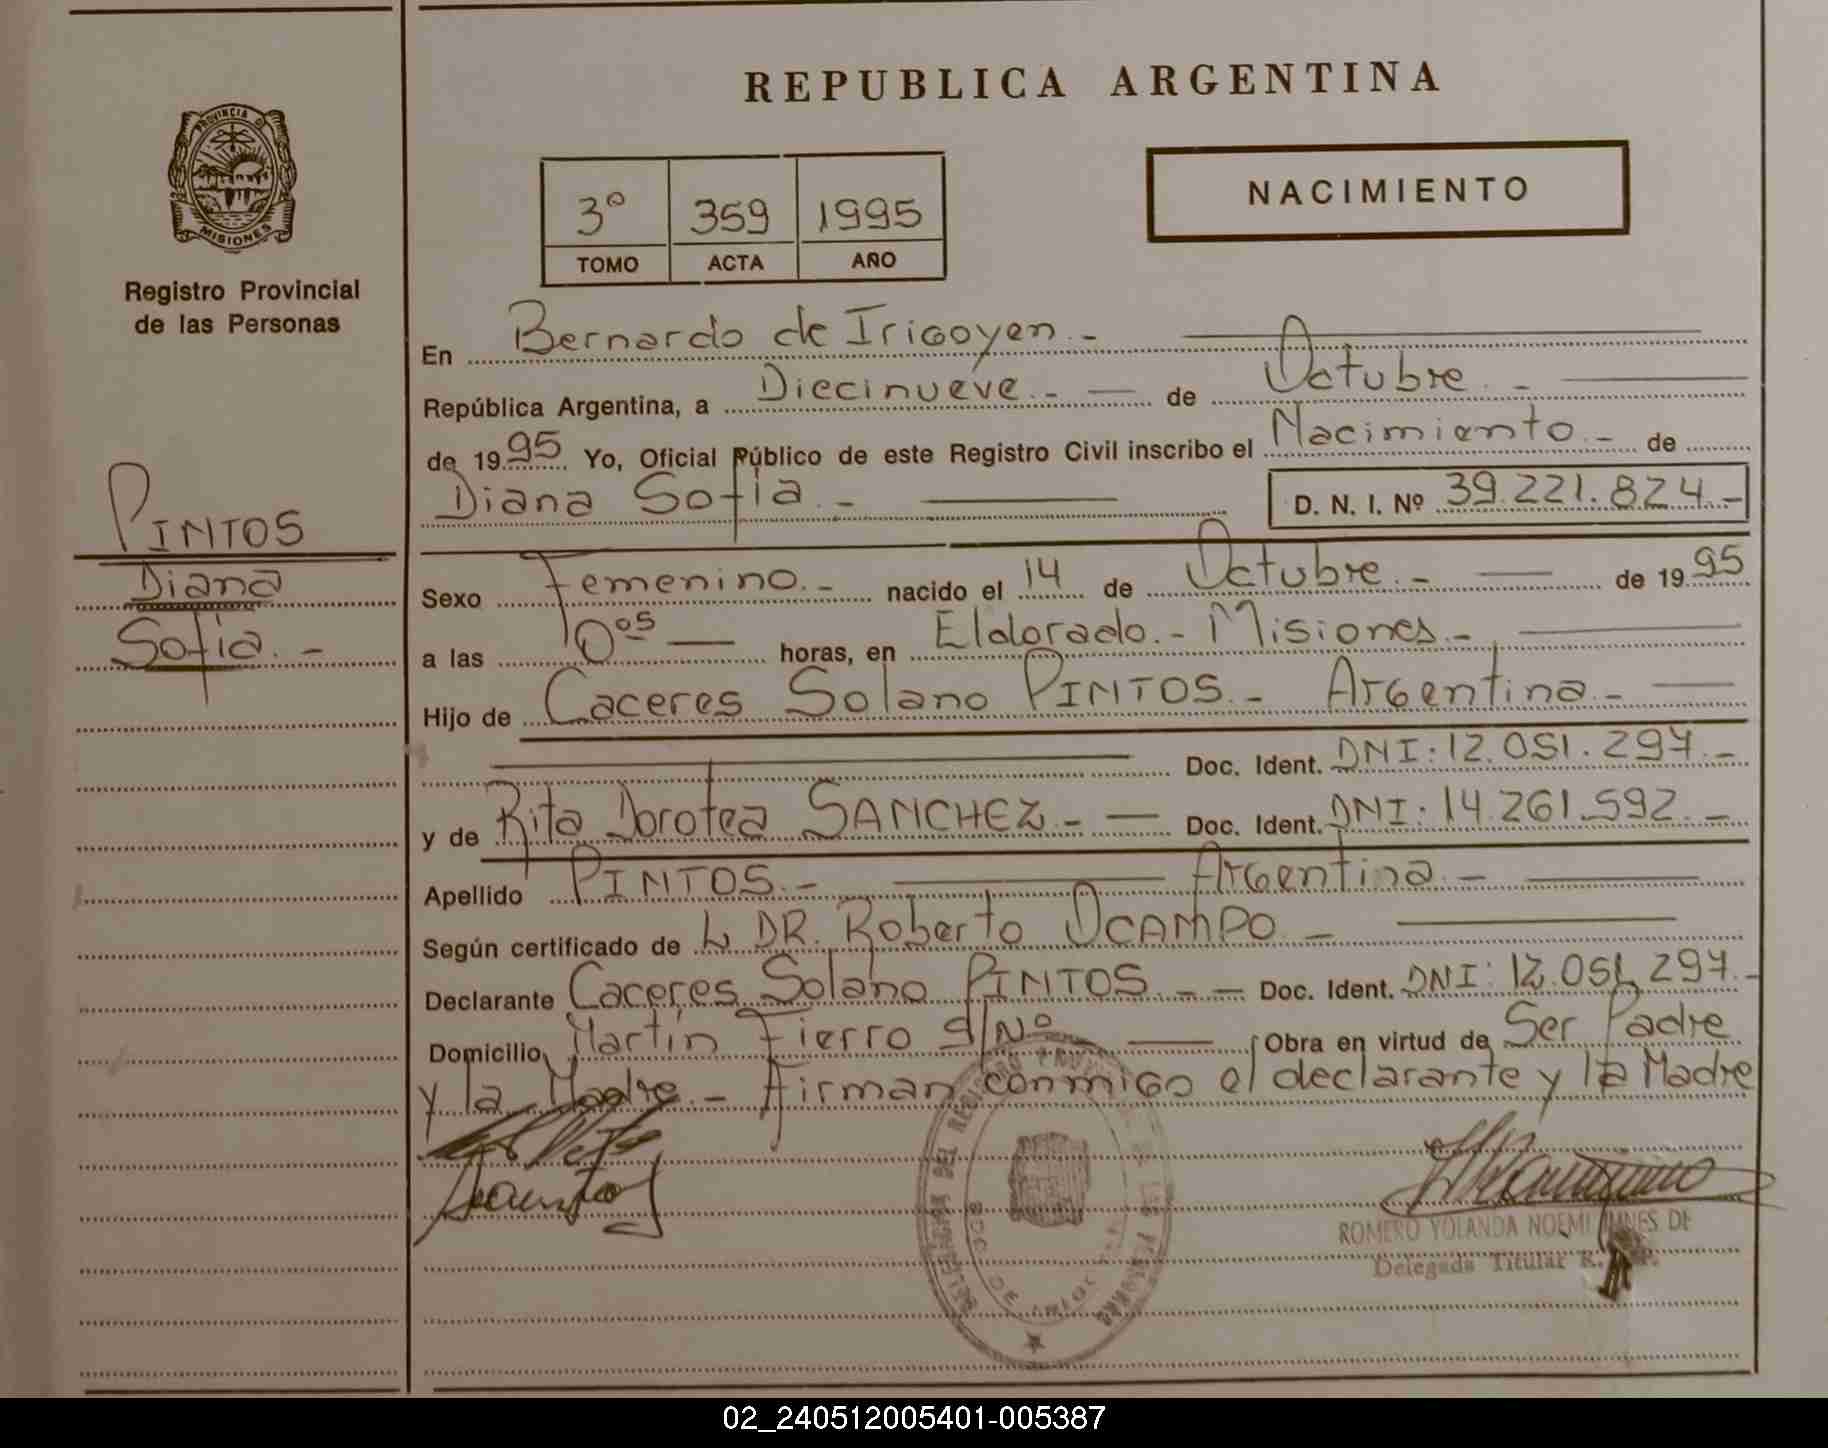 REPUBLICA ARGENTINA
NACIMIENTO
3º 359 1995
TOMO ACTA AÑO
PROVINCIA DE
MISIONES
Registro Provincial
de las Personas
PINTOS
Diana
Sofía.-
En Bernardo de Irigoyen.-
República Argentina, a Diecinueve.- de Octubre.-
de 1995 Yo, Oficial Público de este Registro Civil inscribo el Nacimiento.- de
Diana Sofía.- D. N. I. Nº 39.221.824.-
Sexo Femenino.- nacido el 14 de Octubre.- de 1995
a las 0⁰⁵ horas, en Eldorado.- Misiones.-
Hijo de Caceres Solano PINTOS.- Argentina.-
Doc. Ident. DNI: 12.051.297.-
y de Rita Dorotea SANCHEZ.- Doc. Ident. DNI: 14.261.592.-
Apellido PINTOS.- Argentina.-
Según certificado de DR. Roberto OCAMPO.-
Declarante Caceres Solano PINTOS.- Doc. Ident. DNI: 12.051.297.-
Domicilio Martín Fierro S/Nº Obra en virtud de Ser Padre
y la Madre.- Firman conmigo el declarante y la Madre
ROMERO YOLANDA NOEMI DE
Delegada Titular
02_240512005401-005387